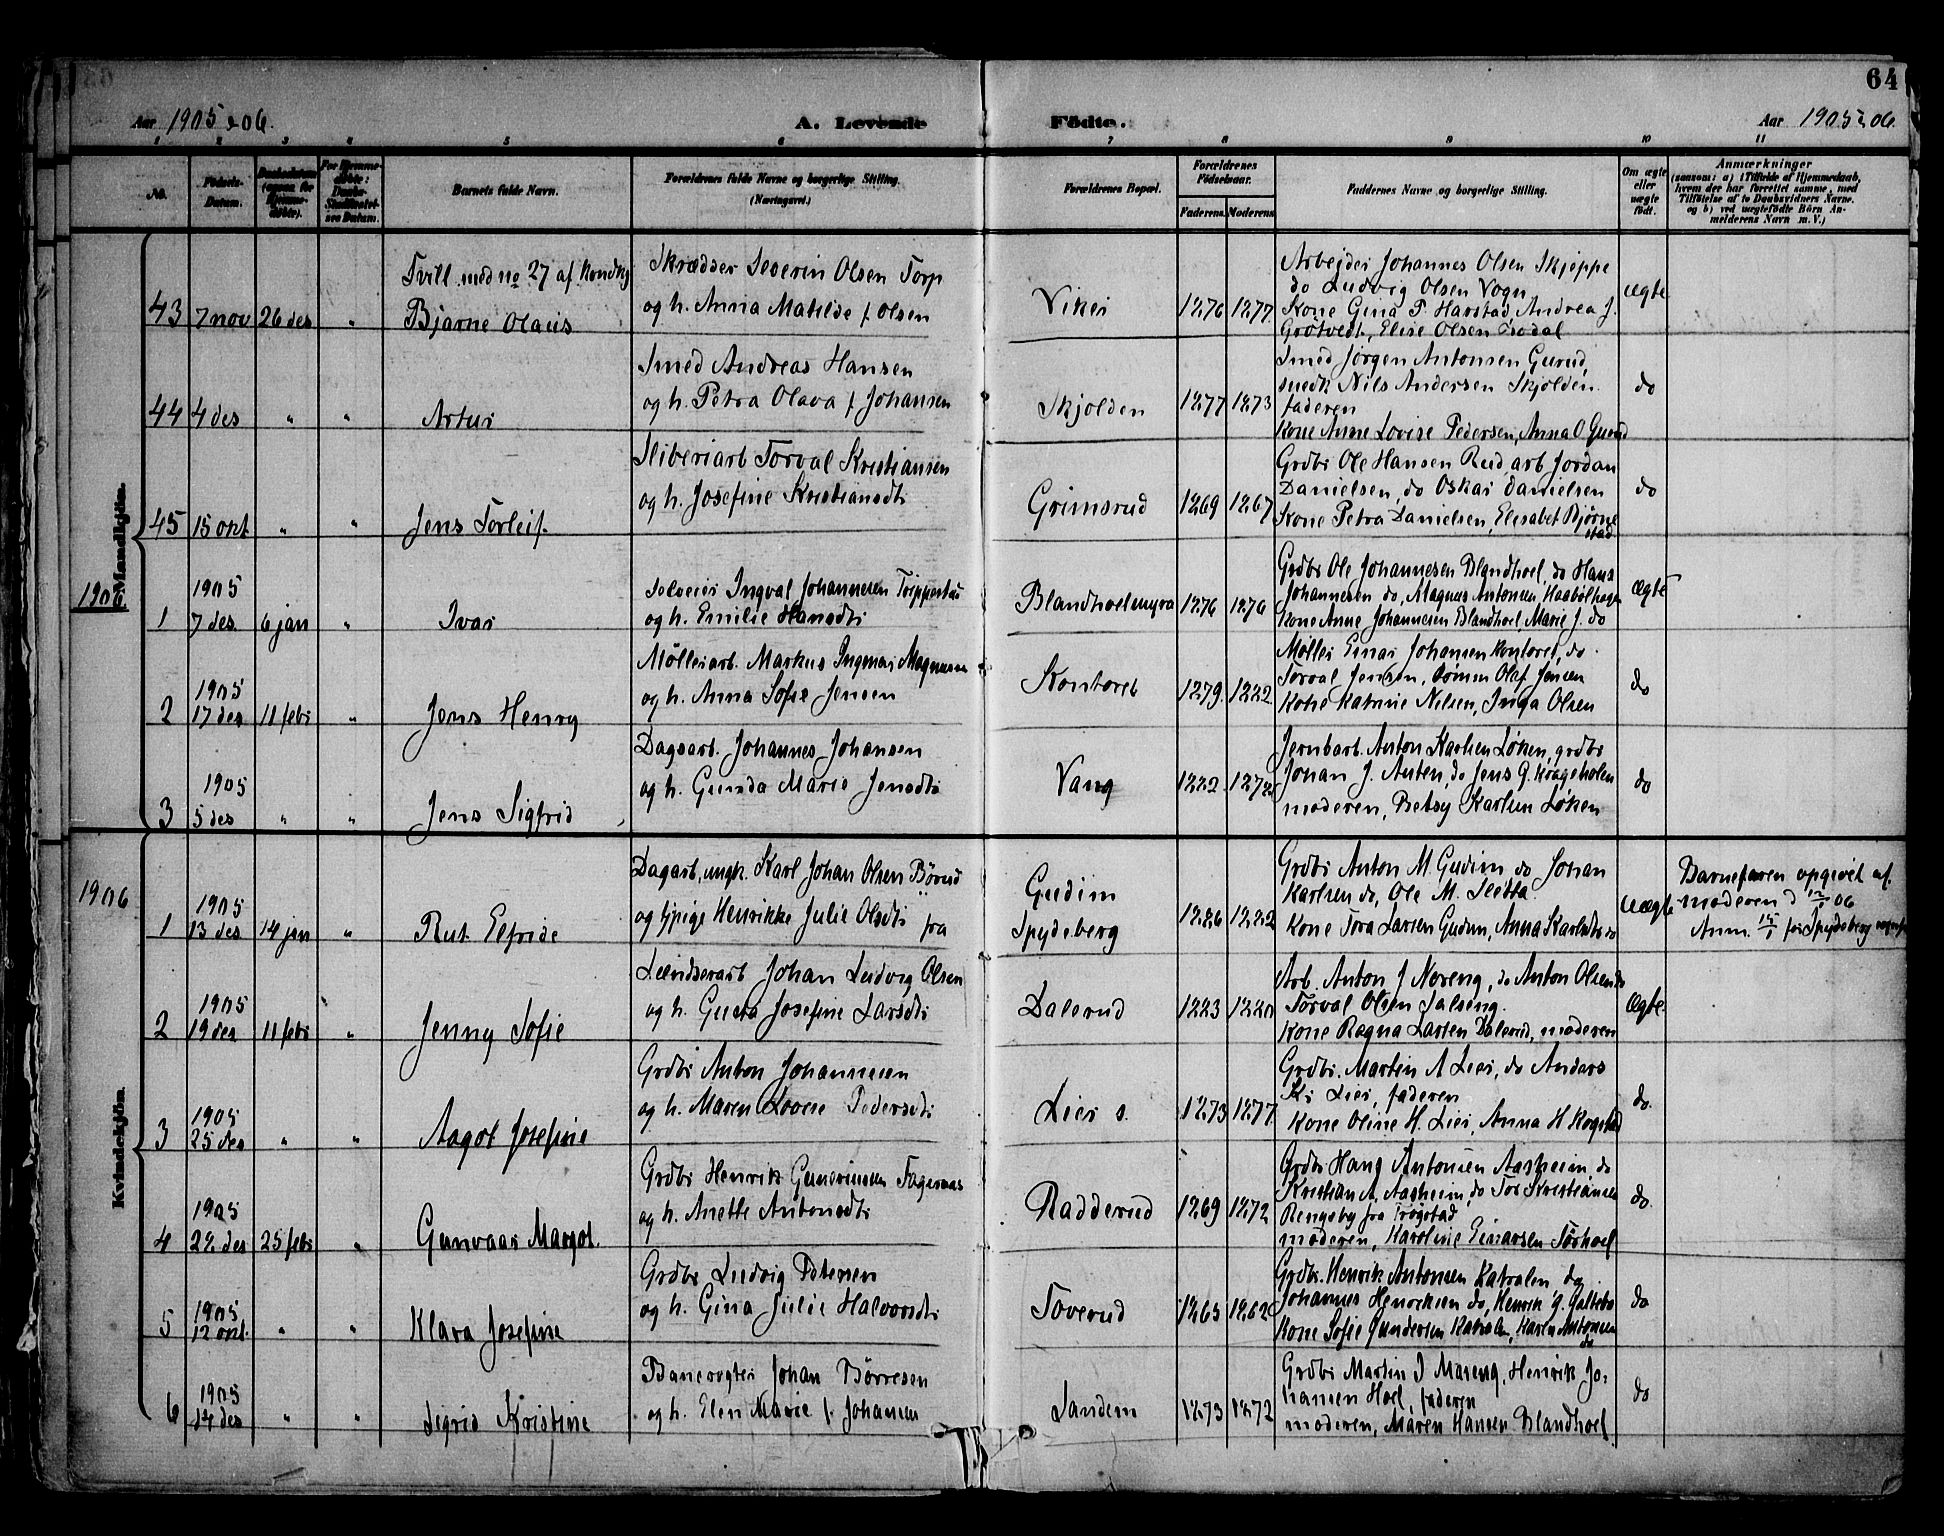 64
Aar 1905 o 06.
A. Levende
Födte.
Aar 1905 o 06.
1 2 3 4 5 6 7 8 9 10 11
No.
Födsels-
Datum.
Barnets fulde Navn.
Forældrenes fulde Navne og borgerlige Stilling.
(Næringsvei.)
Forældrenes Bopæl.
Forældrenes
Födselsaar.
Faderens. Moderens.
Faddernes Navne og borgerlige Stilling.
Om ægte
eller
uægte
født.
Anmærkninger
(saasom: a) i Tilfælde af Hjemmedaab,
hvem der har forrettet samme, med
Tilföielse af to Daabsvidners Navne,
og b) ved uægtefödte Börn An-
melderens Navn m. V.)
Mandkjön.
Tvill. med no 27 af kvindkj
Skrædder Severin Olsen Torp
Arbejder Johannes Olsen Skjøppe
do Ludvig Olsen Vogn
43 7 nov 26 des " Bjarne Olaus
og h. Anna Matilde f. Olsen
Viker 1876 1877
Kone Gina P. Harstad, Andrea J.
Grøtvedt, Elise Olsen
ægte
Smed Andreas Hansen
Smed Jørgen Antonsen Gurud,
snedk Nils Andersen Skjolden
faderen
44 4 des " " Artur
og h. Petra Olava f. Johansen
Skjolden 1877 1873
Kone Anne Lovise Pedersen, Anna O. Gurud
do
Sliberiarb Torval Kristiansen
Grdbr Ole Hansen Rud arb Jordan
Danielsen, do Oskar Danielsen
45 15 okt " " Jens Torleif.
og h. Josefine Kristiansdtr
Grimsrud 1869 1867
Kone Petra Danielsen, Elisabet Bjørne
stad
do
1906
1905
Selveier Ingval Johannesen
Grdbr Ole Johannesen Blandhoel, do Hans
Johannesen do, Magnus Antonsen
1 7 des 6 jan " Ivar
og h. Emilie Hansdtr
Blandhoelmyra 1876 1876
Kone Anne Johannesen Blandhoel, Marie J. do
ægte
1905
Møllerarb. Markus Ingemar Magnussen
Møller Einar Johansen Kontoret, do
Torval Jensen, Olaf Jensen
2 17 des 11 febr " Jens Henry
og h. Anna Sofie Jensen
Kontoret 1879 1882
Kone Katrine Nilsen, Inga Olsen
do
1905
Dagarb. Johannes Johansen
Jernbarb. Anton Karlsen Løken, grdbr
Johan J. Auten, do Jens G. Krageholen
3 5 des " " Jens Sigfrid
og h. Gunda Marie Jensdtr
Vang 1882 1872
moderen, Betsy Karlsen Løken
do
Kvindekjön.
1906
1905
Dagarb, ungk. Karl Johan Olsen Børud
Gudim
Grdbr Anton M. Gudim do Johan
Karlsen do, Ole M. Sletta
1 13 des 14 jan " Rut Elfride
og pige Henrikke Julie Olsdtr fra
Spydeberg 1886 1882
Kone Tora Larsen Gudim, Anna Karlsdtr do
uægte
Barnefaren opgivet af
moderen d 12/1 06
Anm. 15/1 for Spydeberg
1905
Leendserarb Johan Ludvig Olsen
Arb. Anton J Noreng, do Anton Olsen do
Torval Olsen Salseng.
2 19 des 11 febr " Jenny Sofie
og h. Gusta Josefine Larsdtr
Dalerud 1883 1880
Kone Ragna Larsen Dalerud, moderen
ægte.
1905
Grdbr Anton Johannesen
Grdbr. Martin A Lier, do Anders
Kr Lier, faderen
3 25 des " " Aagot Josefine
og h. Maren Lovise Pedersdtr
Lier s. 1873 1877
Kone Oline H. Lier, Anna H Kogstad
do.
1905
Grdbr Henrik Guneriussen Fagernas
Grdbr Hans Antonsen Aasheim do
Kristian A. Aasheim, do Tor Kristiansen
Rengsby fra Trøgstad
4 28 des 25 febr " Gunvaar Margot.
og h. Anette Antonsdtr
Radderud 1869 1872
moderen, Karoline Einarsen Tørhoel
do.
1905
Grdbr Ludvig Petersen
Grdbr. Henrik Antonsen Katralen do
Johannes Henriksen do, Henrik G. Galtebo
5 12 okt. " " Klara Josefine
og h. Gina Julie Halvorsdtr
Toverud 1865 1862
Kone Sofie Gundersen Katralen, Karen Antonsen
do
do
1905
Banevogter Johan Børresen
Grdbr Martin J Mareng, Henrik Jo-
hansen Hoel, faderen
6 14 des " " Sigrid Kristine
og h. Elen Marie f. Johansen
Sandem 1873 1872
moderen, Maren Hansen Blandhoel
do